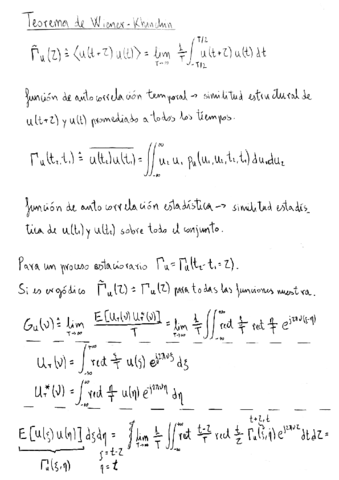 Teorema de Wiener-Khinchin
Γ̃u(z) ≜ ⟨u(t+z) u(t)⟩ = lim T→∞ 1/T ∫_{-T/2}^{T/2} u(t+z) u(t) dt
función de autocorrelación temporal → similitud estructural de
u(t+z) y u(t) promediado a todos los tiempos.
Γu(t₂,t₁) ≜ u(t₂)u(t₁) = ∬_{-∞}^{∞} u₂ u₁ pu(u₂,u₁,t₂,t₁) du₁du₂
función de autocorrelación estadística → similitud estadís-
tica de u(t₂) y u(t₁) sobre todo el conjunto.
Para un proceso estacionario Γu = Γu(t₂-t₁=z).
Si es ergódico Γ̃u(z) = Γu(z) para todas las funciones muestra.
Gu(ν) ≜ lim T→∞ E[U_T(ν) U_T*(ν)] / T = lim T→∞ 1/T ∬_{-∞}^{+∞} rect ξ/T rect η/T e^{j2πν(ξ-η)}
U_T(ν) = ∫_{-∞}^{+∞} rect ξ/T u(ξ) e^{j2πνξ} dξ
U_T*(ν) = ∫_{-∞}^{+∞} rect η/T u(η) e^{j2πνη} dη
E[u(ξ) u(η)] dξdη = lim T→∞ 1/T ∬ rect t+z/T rect t/T Γu(ξ,η) e^{j2πνz} dtdz =
t+z, t
ξ=t+z
Γu(ξ,η)
η=t